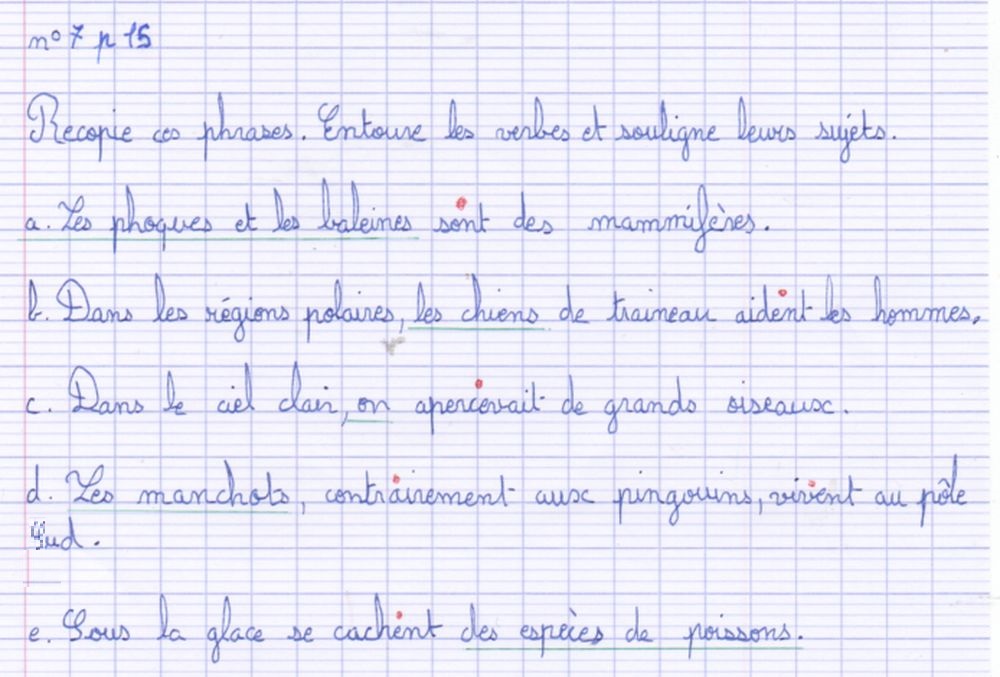 n° 7 p 15
Recopie ces phrases. Entoure les verbes et souligne leurs sujets.
a. Les phoques et les baleines sont des mammifères.
b. Dans les régions polaires, les chiens de traineau aident les hommes.
c. Dans le ciel clair, on apercevait de grands oiseaux.
d. Les manchots, contrairement aux pingouins, vivent au pôle
Sud.
e. Sous la glace se cachent des espèces de poissons.